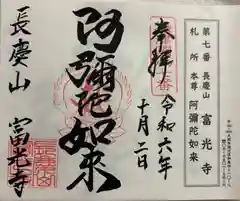 第七番 長慶山 富光寺
札所 本尊 阿彌陀如来
奉拝
令和六年
十月二日
阿彌陀如来
長慶山
富光寺